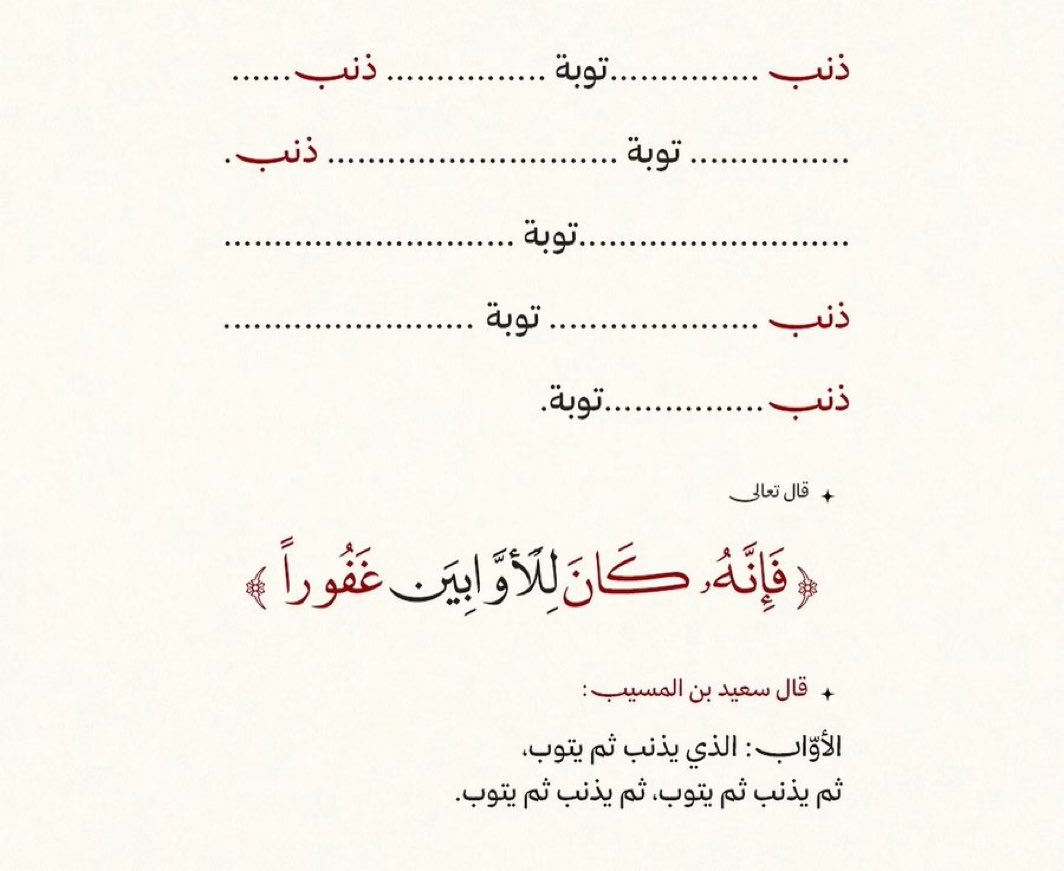 ذنب ...............توبة ................ ذنب......
................ توبة ............................. ذنب.
...........................توبة .............................
ذنب ..................... توبة .........................
ذنب ................توبة.
قال تعالى
﴿فَإِنَّهُۥ كَانَ لِلْأَوَّابِينَ غَفُوراً﴾
قال سعيد بن المسيب:
الأوّاب: الذي يذنب ثم يتوب،
ثم يذنب ثم يتوب، ثم يذنب ثم يتوب.